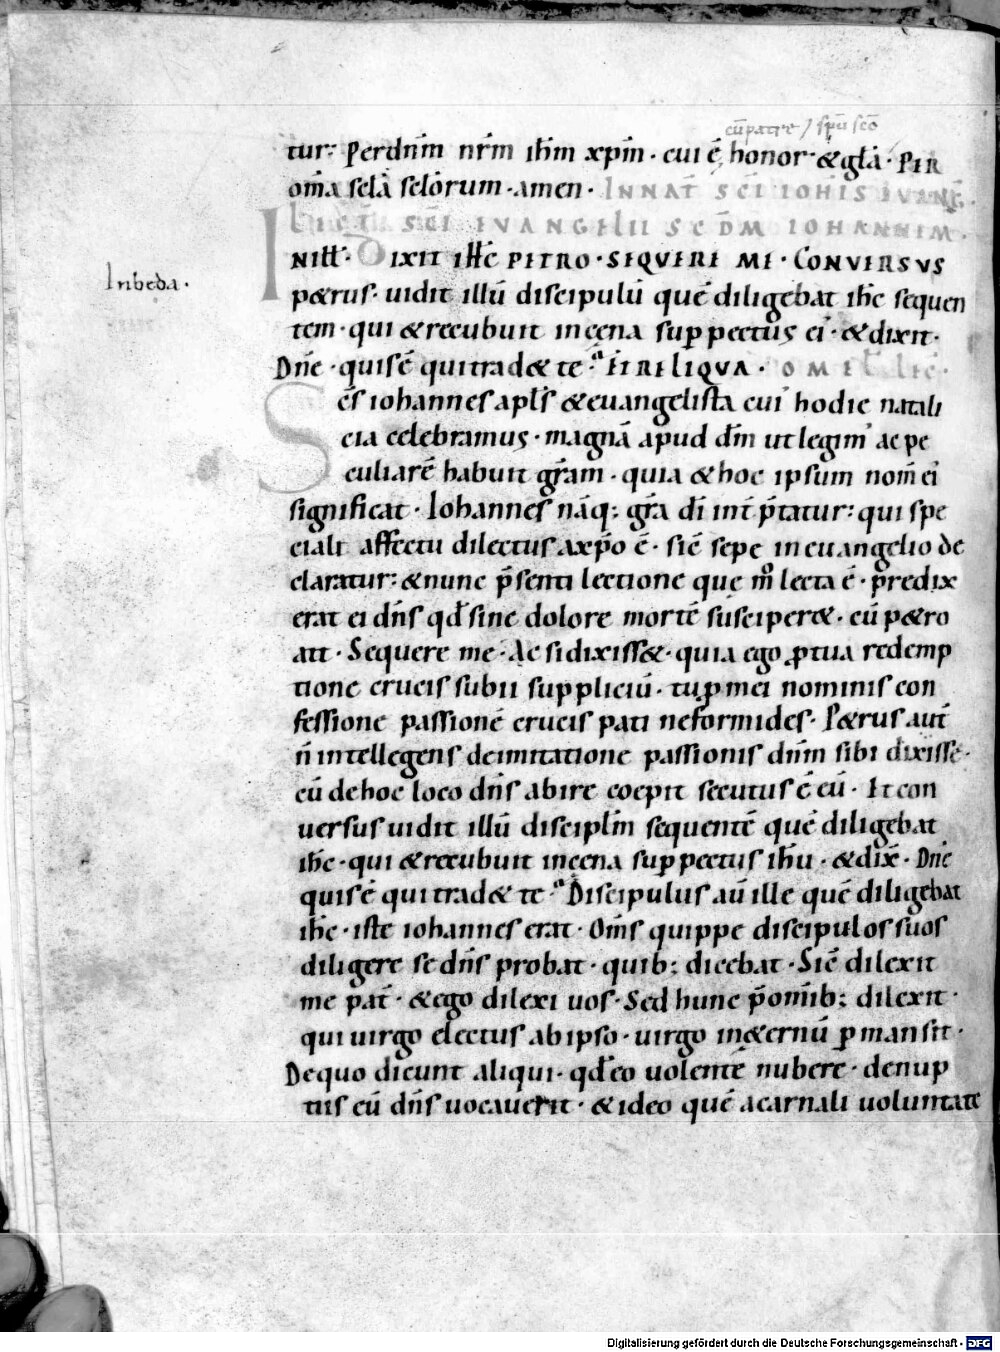 cū patre / spū scō
tur: Perdn̄m nr̄m ih̄m xpm̄ · cui ē honor · & gl̄a · PER
om̄a scl̄a scl̄orum · amen · IN NAT̄ SC̄I IOH̄IS EVANḠ.
LECT̄ SC̄I EVANGELII SCD̄M IOHANNEM ·
IN ILL̄ · DIXIT IH̄C PETRO · SEQUERE ME · CONVERSVS
In beda ·
p&rus · uidit illū discipulū quē diligebat ih̄c sequen
tem · qui & recubuit incęna sup̱ pectus ei' · & dixit ·
Dn̄e · quis ē qui trad& te? ET RELIQVA · OMEL̄ LEC̄ ·
Sc̄s iohannes apl̄s & euangelista cui' hodie natali
cia celebramus · magnā apud dm̄ ut legim' ac pe
culiarē habuit gr̄am · quia & hoc ipsum nom̄ ei'
significat · Iohannes nāq; gr̄a dī int̄p̄tatur: qui spe
ciali affectu dilectus axp̄o ē · sic̄ sepe in euangelio de
claratur: & nunc p̄senti lectione que m̊ lecta ē · p̄redix
erat ei dn̄s qd̄ sine dolore mortē susciper& · cū p&ro
ait · Sequere me · Ac si dixiss& · quia ego p̱ tua redemp
tione crucis subii suppliciū · tu p̱ mei nominis con
fessione passionē crucis pati ne formides · P&rus aut̄
n̄ intellegens de imitatione passionis dn̄m sibi dixisse ·
cū de hoc loco dn̄s abire coepit secutus ē eū · Et con
uersus uidit illū discipl̄m sequentē quē diligebat
ih̄c · qui & recubuit incęna sup̱ pectus ih̄u · & dix̄ · Dn̄e
quis ē qui trad& te? Discipulus aū ille quē diligebat
ih̄c · iste iohannes erat · Om̄s quippe discipulos suos
diligere se dn̄s probat · quib; dicebat · Sic̄ dilexit
me pat̄ · & ego dilexi uos · Sed hunc p̄ om̄ib; dilexit ·
qui uirgo electus ab ipso · uirgo in&ernū p̱mansit ·
De quo dicunt aliqui · qd̄ eo uolente nubere · de nup
tiis eū dn̄s uocauerit · & ideo quē a carnali uoluntate
Digitalisierung gefördert durch die Deutsche Forschungsgemeinschaft - DFG